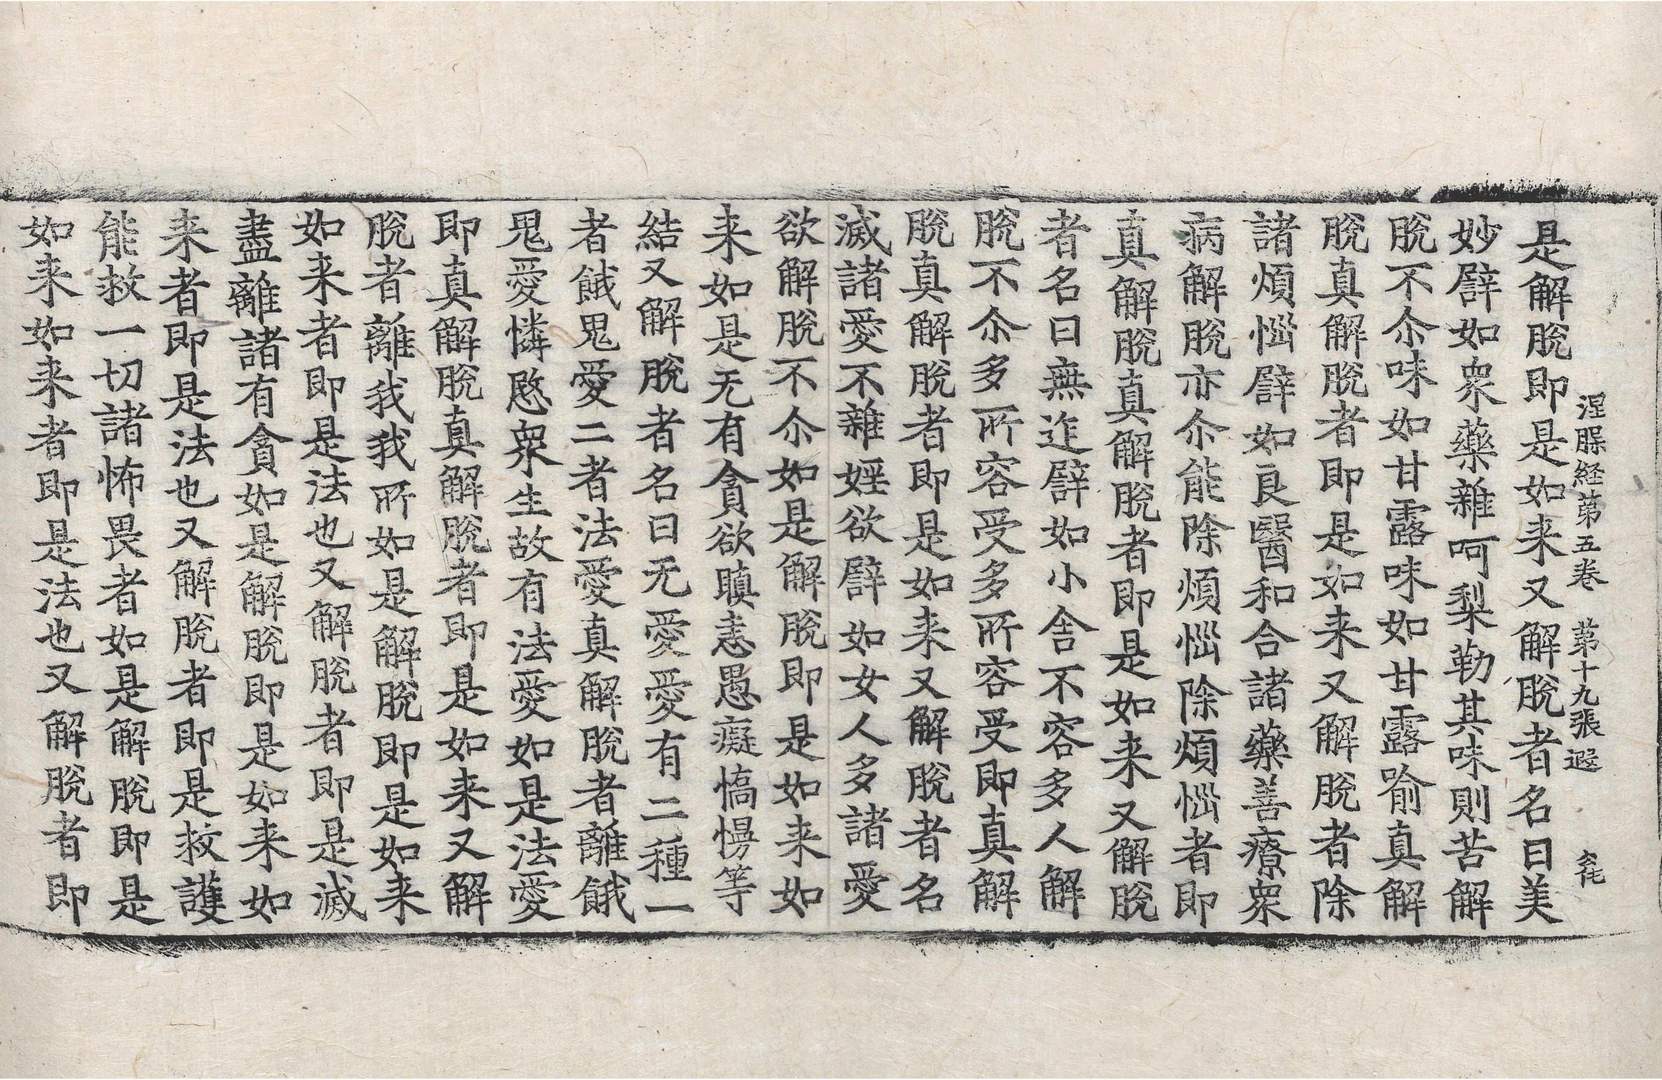 涅槃経第五卷　第十九張　遐
是解脫即是如来又解脫者名曰美
妙譬如衆藥雜呵梨勒其味則苦解
脫不尒味如甘露味如甘露喻真解
脫真解脫者即是如来又解脫者除
諸煩惱譬如良醫和合諸藥善療衆
病解脫亦尒能除煩惱除煩惱者即
真解脫真解脫者即是如来又解脫
者名曰無迮譬如小舍不容多人解
脫不尒多所容受多所容受即真解
脫真解脫者即是如来又解脫者名
滅諸愛不雜婬欲譬如女人多諸愛
欲解脫不尒如是解脫即是如来如
来如是无有貪欲瞋恚愚癡憍慢等
結又解脫者名曰无愛愛有二種一
者餓鬼愛二者法愛真解脫者離餓
鬼愛憐愍衆生故有法愛如是法愛
即真解脫真解脫者即是如来又解
脫者離我我所如是解脫即是如来
如来者即是法也又解脫者即是滅
盡離諸有貪如是解脫即是如来如
来者即是法也又解脫者即是救護
能救一切諸怖畏者如是解脫即是
如来如来者即是法也又解脫者即